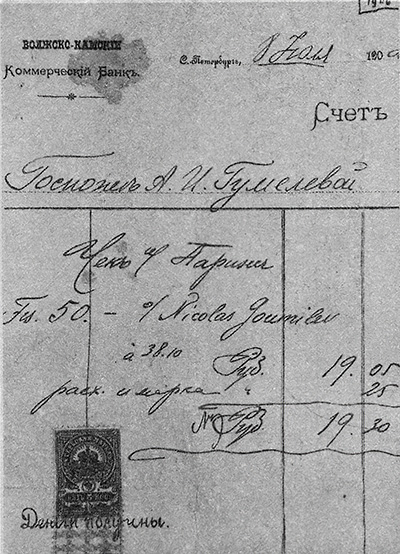 ВОЛЖСКО-КАМСКІЙ
Коммерческій Банкъ.
С. Петербургъ, 8 Іюля 190
Счетъ
Госпожѣ А. И. Гумилевой
Чекъ Парижъ
Frs. 50. – o/ Nicolas Goumilev
à 38.10 Руб. 19. 05
расх. и марка " 25
Руб. 19. 30
Деньги получены.